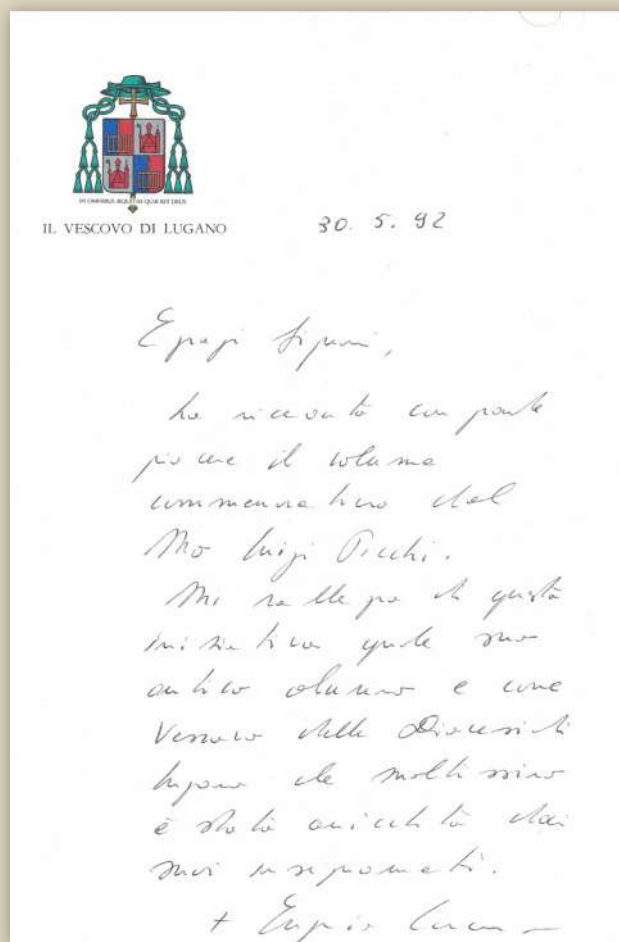 IN OMNIBUS AEQUITAS QUAE EST DEUS
IL VESCOVO DI LUGANO
30. 5. 92
Egregi Signori,
ho ricevuto con grande
piacere il volume
commemorativo del
Mo Luigi Picchi.
Mi rallegro di questa
iniziativa quale suo
antico alunno e come
Vescovo della Diocesi di
Lugano che moltissimo
è stata arricchita dai
suoi insegnamenti.
+ Eugenio Corecco